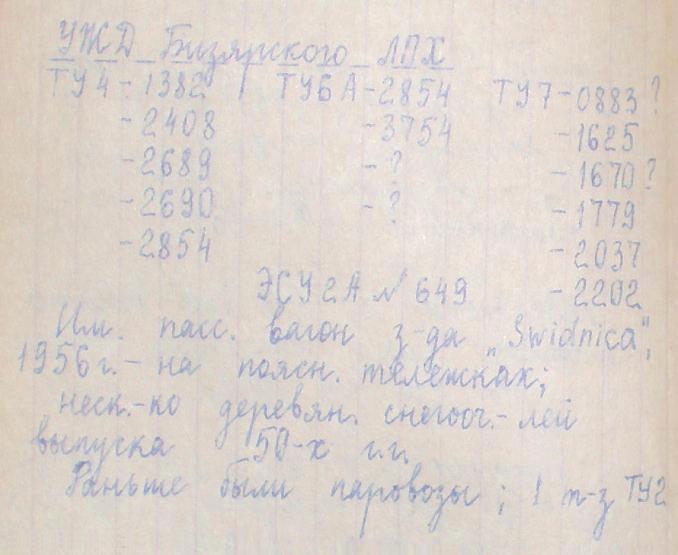 УЖД Бизярского ЛПХ
ТУ4-1382 ТУ6А-2854 ТУ7-0883?
-2408 -3754 -1625
-2689 -? -1670?
-2690 -? -1779
-2854 -2037
ЭСУ2А №649 -2202
Им. пасс. вагон з-да „Swidnica",
1956г.- на поясн. тележках;
неск.-ко деревян. снегооч.-лей
выпуска 50-х г.г.
Раньше были паровозы; 1 т-з ТУ2